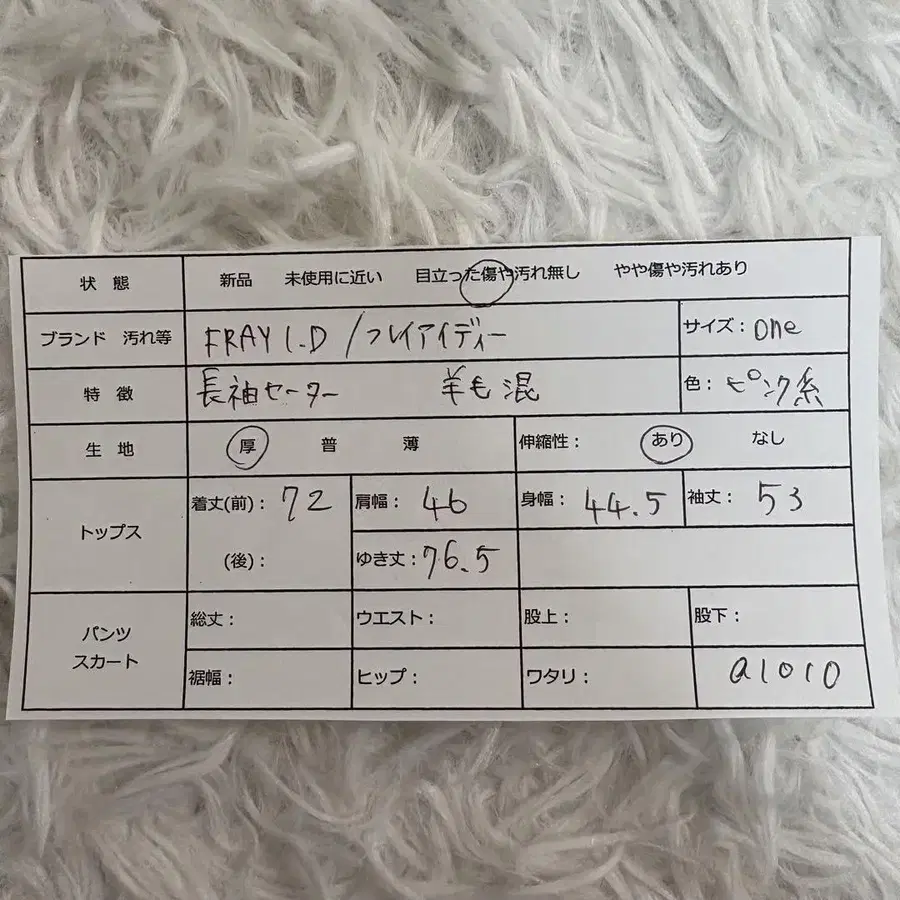 状 態 新品 未使用に近い 目立った傷や汚れ無し やや傷や汚れあり
ブランド 汚れ等 FRAY I.D / フレイアイディー サイズ: one
特 徴 長袖セーター 羊毛混 色: ピンク系
生 地 厚 普 薄 伸縮性: あり なし
トップス 着丈(前): 72 肩幅: 46 身幅: 44.5 袖丈: 53
(後): ゆき丈: 76.5
パンツ スカート 総丈: ウエスト: 股上: 股下:
裾幅: ヒップ: ワタリ: a1010